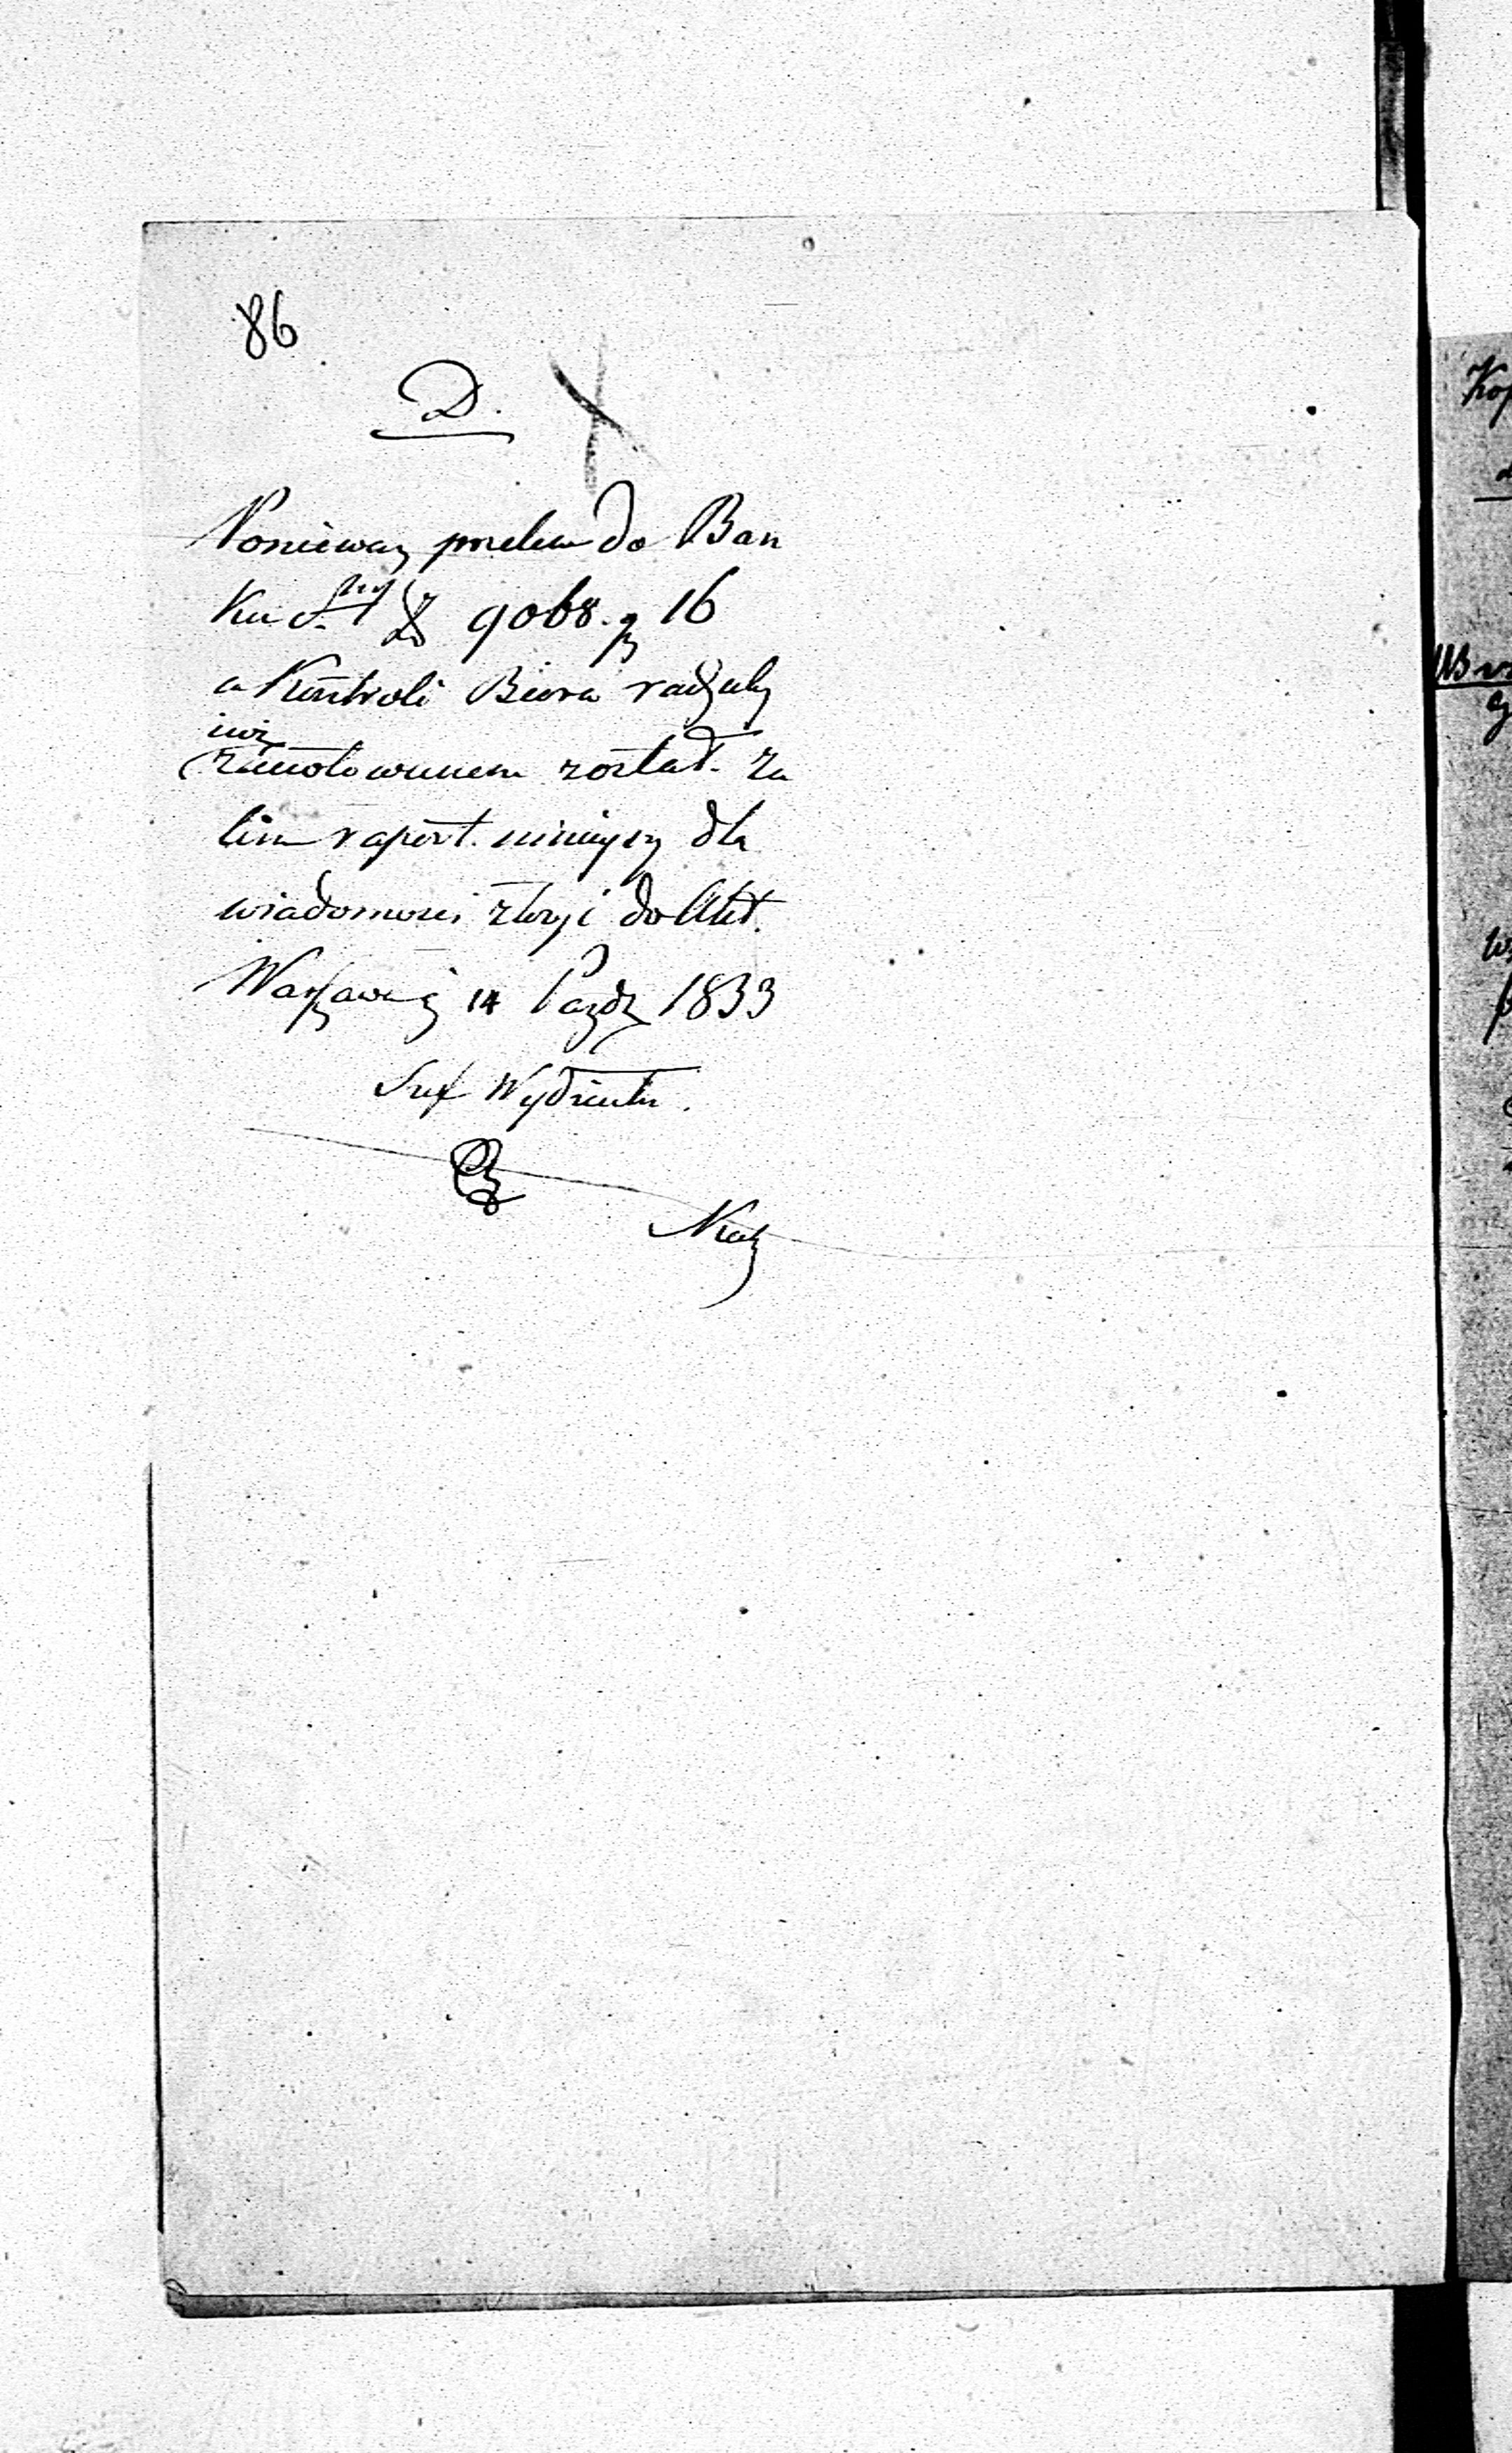 86
D.
Ponieważ przelew do Ban
ku 9068. gr 16
a Kontroli Biura
iuż
zanotowanem został. Za
tim raport. niniejszy dla
wiadomosci złozyć do Akt.
Warszawa 14 Paźdz 1833
Szef Wydziału.